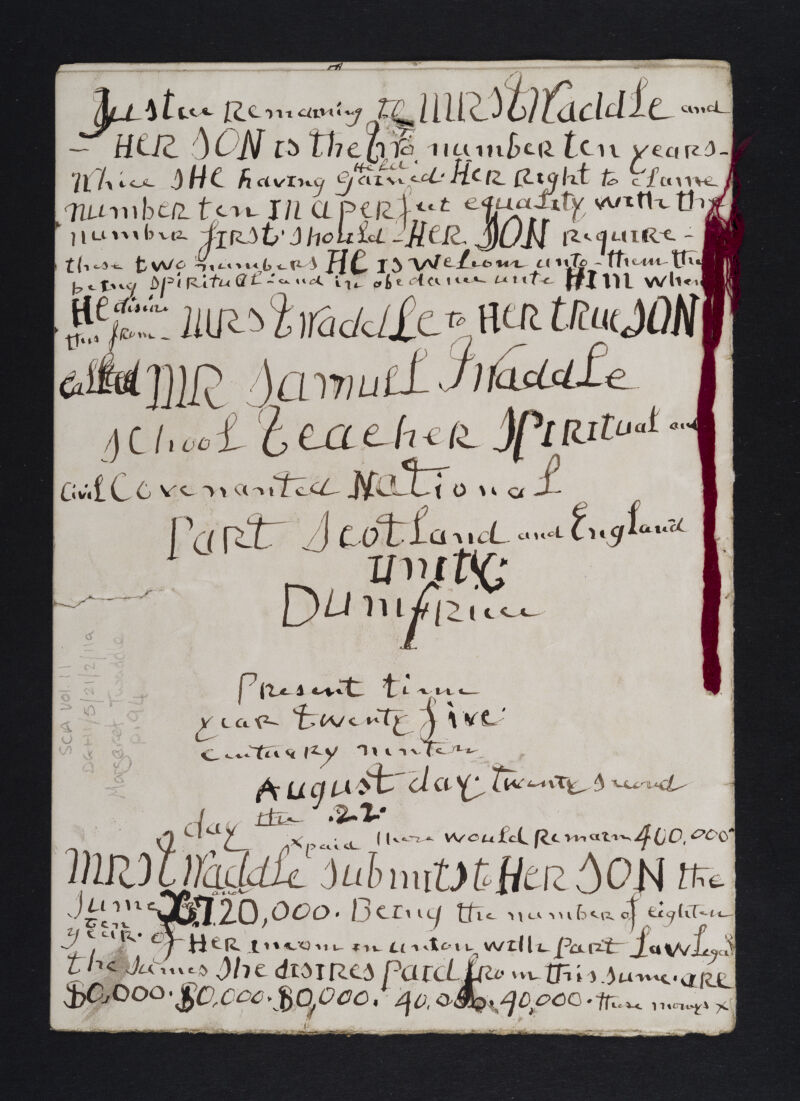 Justice Remaining to MRS tWaddLe and
- HER SON is the two number ten years -
While SHE having gained HER Right to clame
number ten in a perfect equality with the
number first should - HER SON REQUIRE -
these two numbers HE is welcom unto - them the
being spiritual - and in obedance unto HIM when
HE disire
this from - MRS tWaddLe to HER tRUE SON
called MR Samuel tWaddLe
School teacher SPiRitual and
Civil Covenanted National
Part Scotland and England
unity.
Dumfrice
Present time
year twenty five
centuary ninten
August day. twenty second
day the .22.
x paid there would Remain 400,000
MRS tWaddLe submits to HER SON the
sume and 720,000. Being the number of eighten
ten
year. of HER incom in union with Part Law Legal
the sumes she disires paid from this sume. are
80,000. 80,000. 80,000. 40,000. 40,000. these monys x
SCA Vol. 11
DGH1/5/21/2/11a
Margaret Twaddle
p.94